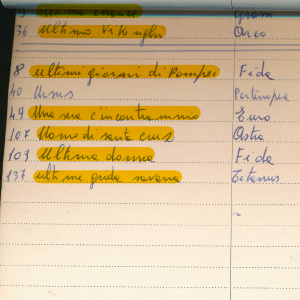 36 Ultimo Vikinghi Orco
8 ultimi giorni di Pompei Fida
40 Ursus Partenopea
49 Una sera c'incontrammo Euro
107 Uomo di santa cruz Astra
109 Ultima donna Fida
137 ultime grida savana Titanus